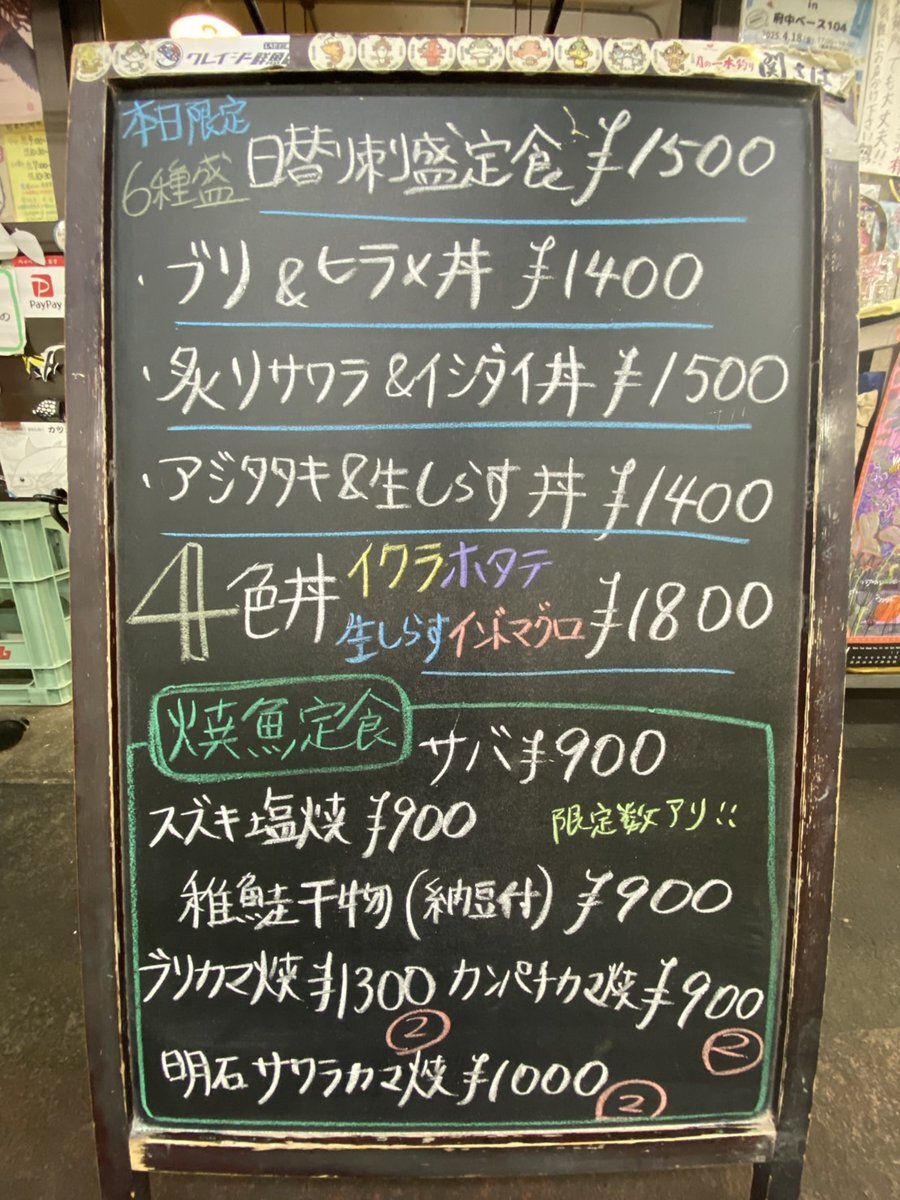 府中ベース104
2025.4.18
本日限定
6種盛 日替り刺盛定食 ¥1500
・ブリ&ヒラメ丼 ¥1400
・炙りサワラ&イシダイ丼 ¥1500
・アジタタキ&生しらす丼 ¥1400
4色丼 イクラ ホタテ
生しらす インドマグロ ¥1800
焼魚定食
サバ ¥900
スズキ塩焼 ¥900 限定数アリ!!
稚鮭干物(納豆付) ¥900
ブリカマ焼 ¥1300 ② カンパチカマ焼 ¥900 ②
明石サワラカマ焼 ¥1000 ②
PayPay